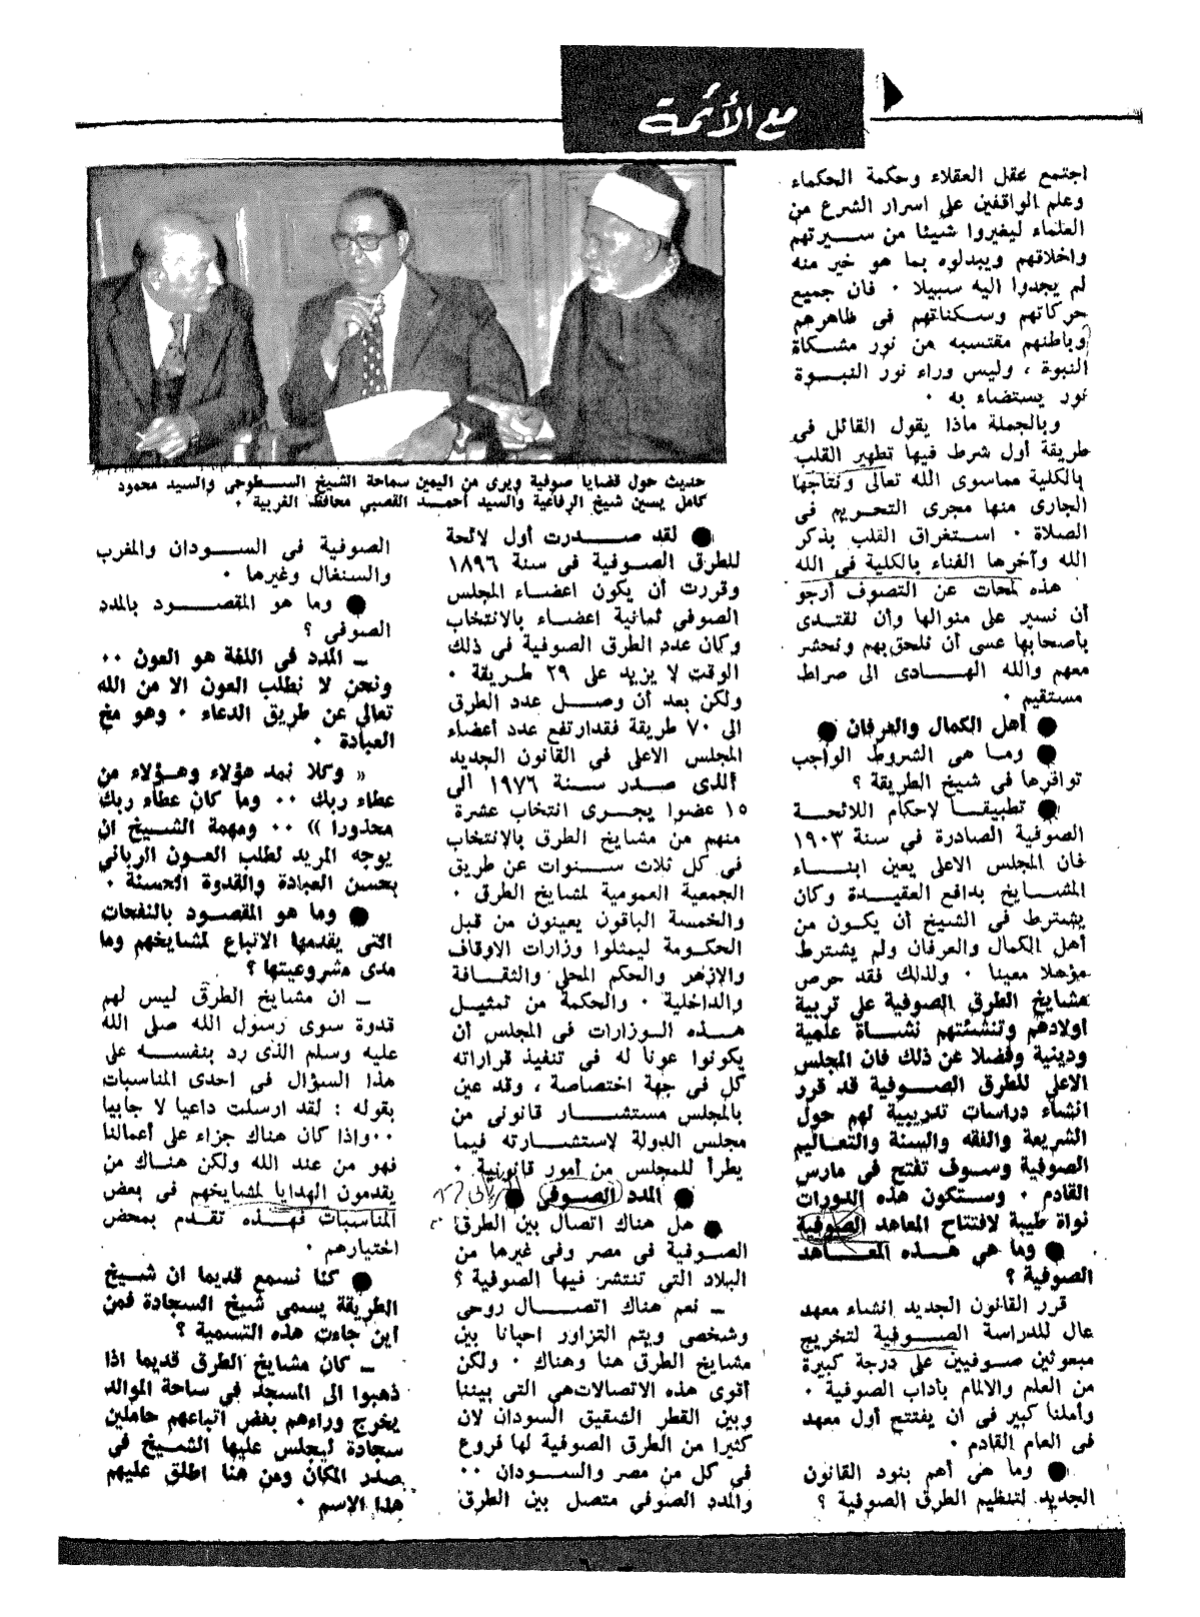 مع الأئمة
اجتمع عقل العقلاء وحكمة الحكماء
وعلم الواقفين على اسرار الشرع من
العلماء ليغيروا شيئا من سـيرتهم
واخلاقهم ويبدلوه بما هو خير منه
لم يجدوا اليه سبيلا ٠ فان جميع
حركاتهم وسـكناتهم فى ظاهرهم
وباطنهم مقتسبه من نور مشـكاة
النبوة ، وليس وراء نور النبـوة
نور يستضاء به ٠
وبالجملة ماذا يقول القائل فى
طريقة أول شرط فيها تطهير القلب
بالكلية مماسوى الله تعالى ونتاجها
الجارى منها مجرى التحريم فى
الصلاة ٠ استغراق القلب بذكر
الله وآخرها الفناء بالكلية فى الله
هذه لمحات عن التصوف أرجو
أن نسير على منوالها وأن نقتدى
بأصحابها عسى أن نلحق بهم ونحشر
معهم والله الهـادى الى صراط
مستقيم ٠
● أهل الكمال والعرفان ●
● ومـا هى الشروط الواجب
توافرها فى شيخ الطريقة ؟
● تطبيقـا لإحكام اللائحـة
الصوفية الصادرة فى سنة ١٩٠٣
فان المجلس الاعلى يعين ابنـاء
المشـايخ بدافع العقيـدة وكان
يشترط فى الشيخ أن يكـون من
أهل الكمال والعرفان ولم يشترط
مؤهلا معينا ٠ ولذلك فقد حرص
مشايخ الطرق الصوفية على تربية
اولادهم وتنشئتهم نشـأة علمية
ودينية وفضلا عن ذلك فان المجلس
الاعلى للطرق الصـوفية قد قرر
انشاء دراسات تدريبية لهم حول
الشريعة والفقه والسنة والتعـاليم
الصوفية وسـوف تفتح فى مارس
القادم ٠ وسـتكون هذه الدورات
نواة طيبة لافتتاح المعاهد الصوفية
● وما هى هـذه المعـاهد
الصوفية ؟
قرر القانون الجديد إنشاء معهد
عال للدراسة الصـوفية لتخريج
مبعوثين صـوفيين على درجة كبيرة
من العلم والالمام بآداب الصوفية ٠
وأملنا كبير فى ان يفتتح أول معهد
فى العام القادم ٠
● وما هى أهم بنود القانون
الجديد لتنظيم الطرق الصوفية ؟
حديث حول قضايا صوفية ويرى من اليمين سماحة الشيخ السـطوحى والسيد محمود
كامل يسين شيخ الرفاعية والسيد أحمـد القصبى محافظ الغربية ٠
● لقد صـدرت أول لائحة
للطرق الصـوفية فى سنة ١٨٩٦
وقررت أن يكون اعضـاء المجلس
الصوفي ثمانية اعضـاء بالانتخاب
وكان عدد الطرق الصوفية في ذلك
الوقت لا يزيد على ٢٩ طـريقة ٠
ولكن بعد أن وصـل عدد الطرق
الى ٧٠ طريقة فقدارتفع عدد أعضاء
المجلس الاعلى في القانون الجديد
الذى صـدر سـنة ١٩٧٦ الى
١٥ عضوا يجـرى انتخاب عشرة
منهم من مشايخ الطرق بالإنتخاب
في كل ثلاث سـنوات عن طريق
الجمعية العمومية لمشايخ الطرق ٠
والخمسة الباقون يعينون من قبل
الحكـومة ليمثلوا وزارات الاوقاف
والازهر والحكم المحلى والثقـافة
والداخلية ٠ والحكمة من تمثيـل
هـذه الـوزارات فى المجلس أن
يكونوا عونا له فى تنفيذ قراراته
كل فى جهة اختصاصة ، وقد عين
بالمجلس مستشـار قانونى من
مجلس الدولة لإستشـارته فيما
يطرأ للمجلس من أمور قانونية ٠
● المدد الصـوفى ●
● هل هناك اتصال بين الطرق
الصـوفية فى مصر وفى غيرها من
البلاد التى تنتشر فيها الصوفية ؟
ـ نعم هناك اتصـال روحى
وشخصى ويتم التزاور احيانا بين
مشايخ الطرق هنا وهناك ٠ ولكن
أقوى هذه الاتصالات هى التى بيننا
وبين القطر الشقيق السودان لان
كثيرا من الطرق الصوفية لها فروع
في كل من مصر والسـودان ٠٠
والمدد الصوفى متصل بين الطرق
الصوفية فى السـودان والمغرب
والسنغال وغيرها ٠
● وما هو المقصـود بالمدد
الصوفي ؟
ـ المدد فى اللغة هو العون ٠٠
ونحن لا نطلب العون الا من الله
تعالى عن طريق الدعاء ٠ وهو مخ
العبادة ٠
« وكلا نمد هؤلاء وهـؤلاء من
عطاء ربك ٠٠ وما كان عطاء ربك
محذورا » ٠٠ ومهمة الشـيخ ان
يوجه المريد لطلب العـون الربانى
بحسن العبادة والقدوة الحسنة ٠
● وما هو المقصـود بالنفحات
التى يقدمها الاتباع لمشايخهم وما
مدى مشروعيتها ؟
ـ ان مشايخ الطرق ليس لهم
قدوة سوى رسول الله صلى الله
عليه وسلم الذى رد بنفسـه على
هذا السؤال فى احدى المناسبات
بقوله : لقد ارسلت داعيا لا جابيا
٠٠واذا كان هناك جزاء على أعمالنا
فهو من عند الله ولكن هنـاك من
يقدمون الهدايا لمشايخهم فى بعض
المناسبات فهـذه تقـدم بمحض
اختيارهم ٠
● كنا نسمع قديما ان شـيخ
الطريقة يسمى شيخ السـجادة فمن
اين جاءت هذه التسمية ؟
ـ كان مشايخ الطرق قديما اذا
ذهبوا الى المسجد في ساحة الموالد
يخرج وراءهم بعض اتباعهم حاملين
سجادة ليجلس عليها الشـيخ في
صدر المكان ومن هنا اطلق عليهم
هذا الإسم ٠